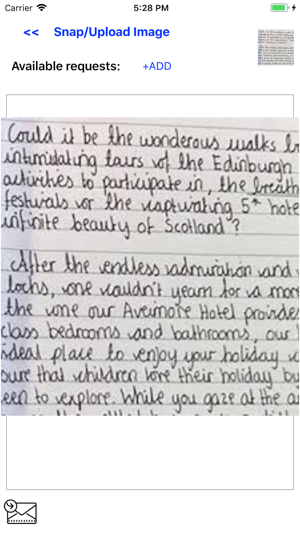 Carrier 5:28 PM
<< Snap/Upload Image
Available requests: +ADD
Could it be the wonderous walks
intimidating tours of the Edinburgh
activities to participate in, the
festivals or the captivating 5* hote
infinite beauty of Scotland?
After the endless admiration and
lochs, one couldn't yearn for a mor
the one our Aveimore Hotel provides
class bedrooms and bathrooms, our
ideal place to enjoy your holiday
sure that children love their holiday bu
een to explore. While you gaze at the a